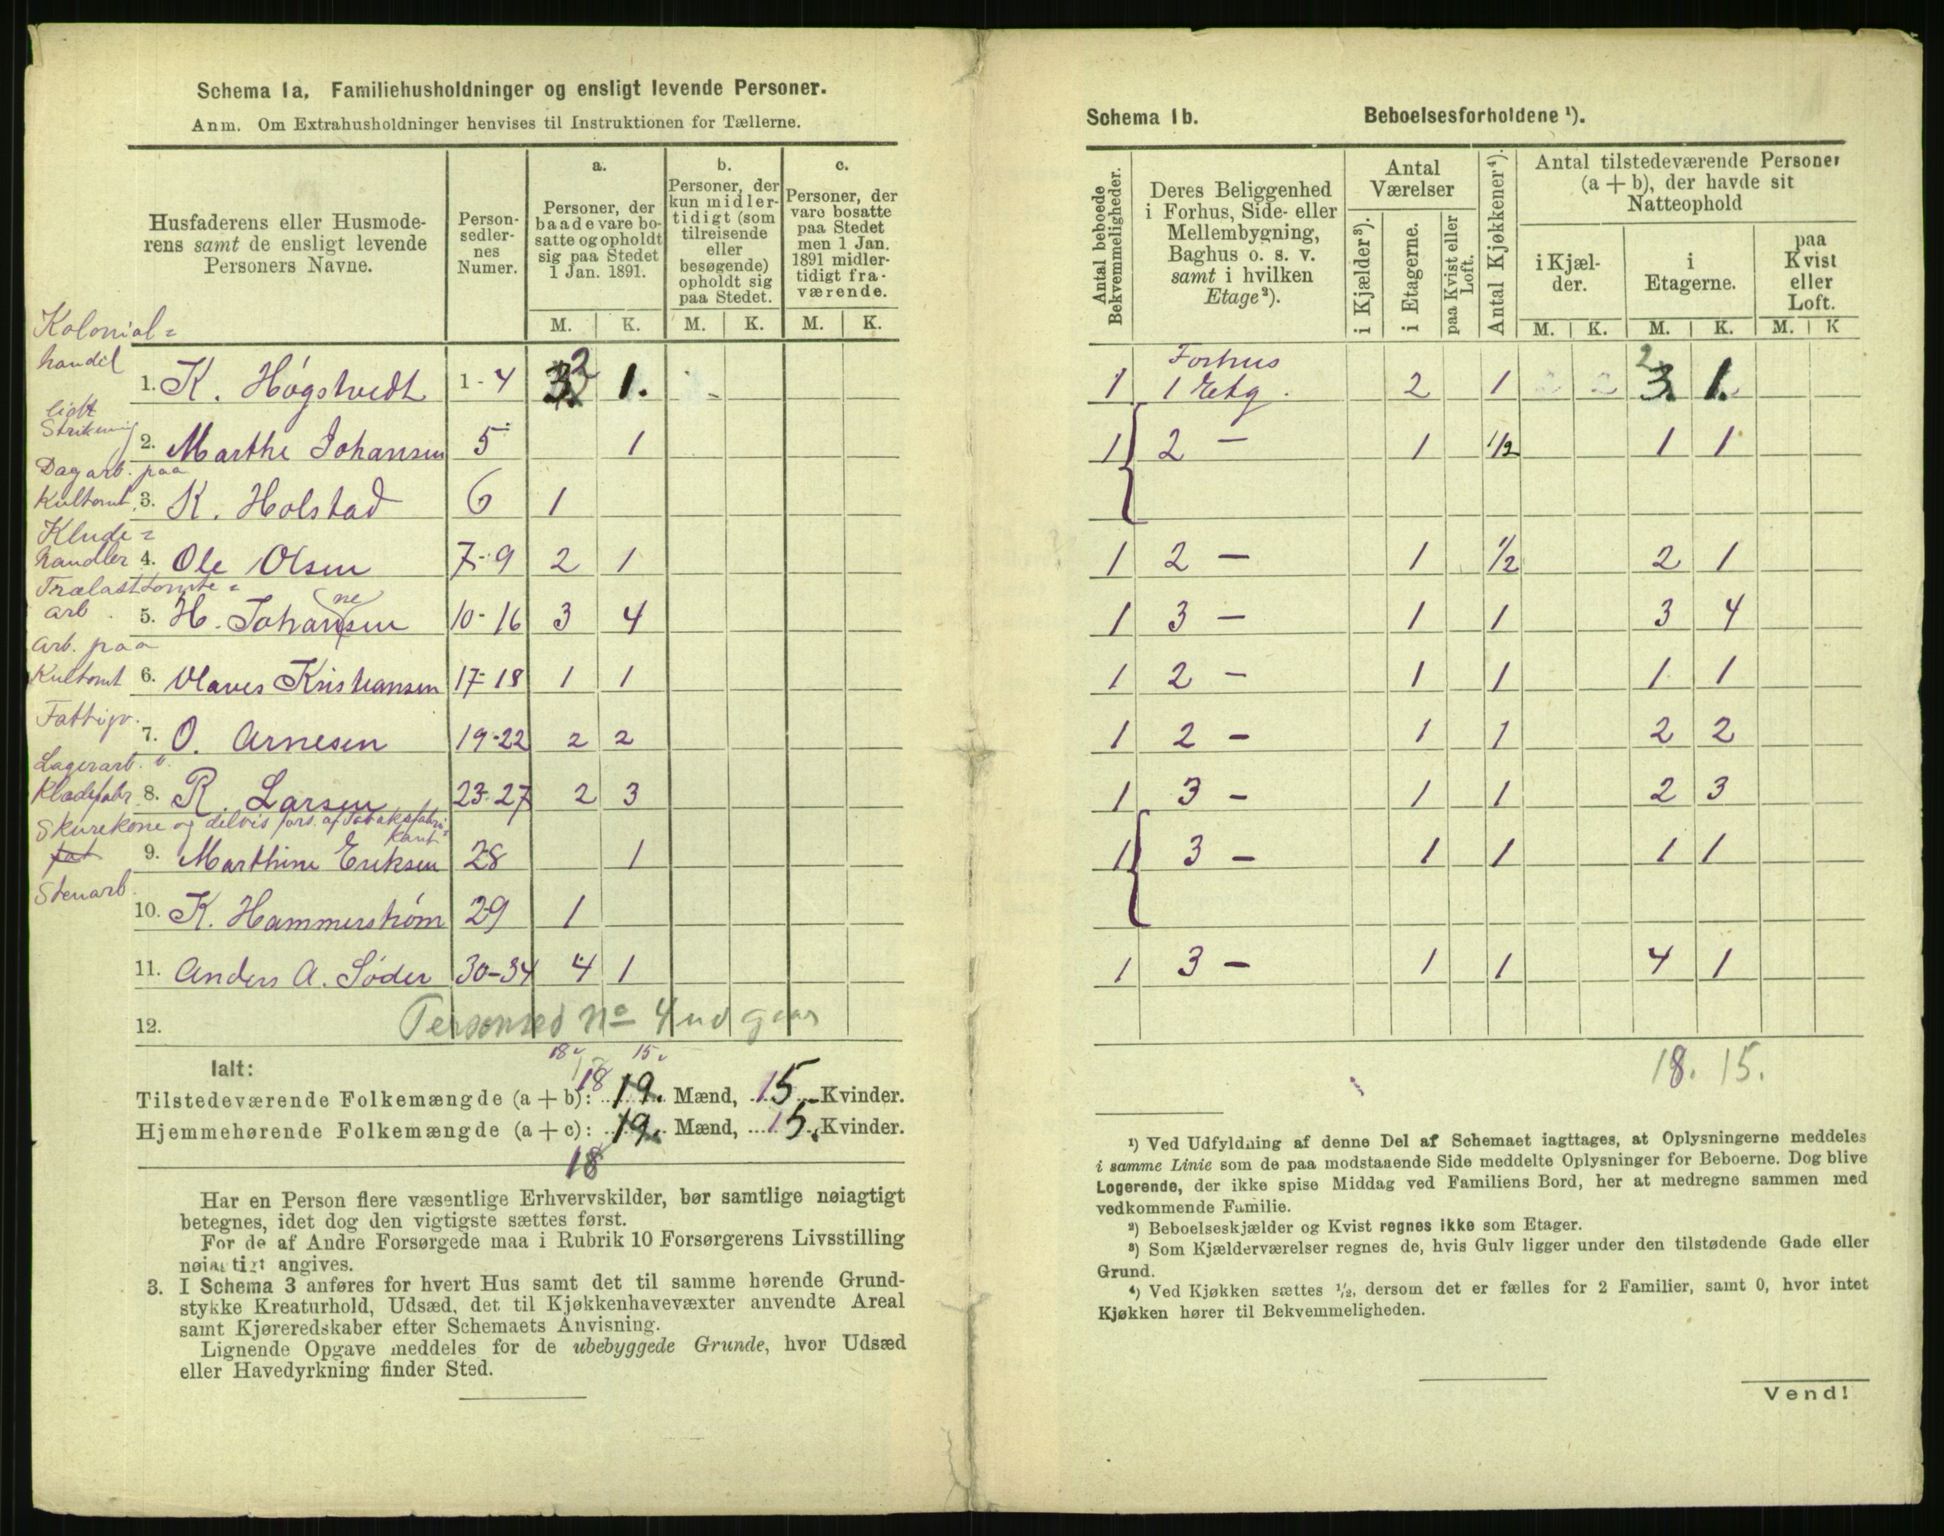 Schema 1a. Familiehusholdninger og ensligt levende Personer.
Anm. Om Extrahusholdninger henvises til Instruktionen for Tællerne.
Husfaderens eller Husmoderens samt de ensligt levende Personers Navne.
Personsedlernes Numer.
a. Personer, der baade vare bosatte og opholdt sig paa Stedet 1 Jan. 1891.
b. Personer, der kun midlertidigt (som tilreisende eller besøgende) opholdt sig paa Stedet.
c. Personer, der vare bosatte paa Stedet men 1 Jan. 1891 midlertidigt fraværende.
M. K. M. K. M. K.
Kolonial=
handel
1. K. Høgstvedt 1-4 3 2 1.
Strikning
2. Marthe Johansen 5 1
Dagarb. paa
Kultomt. 3. K. Holstad 6 1
Klude=
handler 4. Ole Olsen 7-9 2 1
Trælasttomte=
arb. 5. H. Johansen (ne) 10-16 3 4
Arb. paa
Kultomt 6. Olaves Kristiansen 17-18 1 1
Fattigv.
7. O. Arnesen 19-22 2 2
Lagerarb. v.
Klædefabr 8. R. Larsen 23-27 2 3
Skurekone og delvis fors. af Tobaksfabri=
kant
9. Marthine Eriksen 28 1
Stenarb.
10. K. Hammerstrøm 29 1
11. Anders A. Søder 30-34 4 1
12. Personsed No 4 udgaar
18 v 15 v
Ialt: 18
Tilstedeværende Folkemængde (a + b): 18 19. Mænd, 15 Kvinder.
Hjemmehørende Folkemængde (a + c): 19. Mænd, 15. Kvinder.
18
Har en Person flere væsentlige Erhvervskilder, bør samtlige nøiagtigt
betegnes, idet dog den vigtigste sættes først.
For de af Andre Forsørgede maa i Rubrik 10 Forsørgerens Livsstilling
nøiagtigt angives.
3. I Schema 3 anføres for hvert Hus samt det til samme hørende Grund-
stykke Kreaturhold, Udsæd, det til Kjøkkenhavevæxter anvendte Areal
samt Kjøreredskaber efter Schemaets Anvisning.
Lignende Opgave meddeles for de ubebyggede Grunde, hvor Udsæd
eller Havedyrkning finder Sted.
Schema 1b. Beboelsesforholdene ¹).
Antal beboede Bekvemmeligheder.
Deres Beliggenhed i Forhus, Side- eller Mellembygning, Baghus o. s. v. samt i hvilken Etage ²).
Antal Værelser
i Kjælder ³).
i Etagerne.
paa Kvist eller Loft.
Antal Kjøkkener ⁴).
Antal tilstedeværende Personer
(a + b), der havde sit
Natteophold
i Kjælder.
i Etagerne.
paa Kvist eller Loft.
M. K. M. K. M. K
Forhus 2
1 1 Etg. 2 1 3. 1.
1 2 — 1 1/2 1 1
1 2 — 1 1/2 2 1
1 3 — 1 1 3 4
1 2 — 1 1 1 1
1 2 — 1 1 2 2
1 3 — 1 1 2 3
1 3 — 1 1 1 1
1 3 — 1 1 4 1
18. 15.
¹) Ved Udfyldning af denne Del af Schemaet iagttages, at Oplysningerne meddeles
i samme Linie som de paa modstaaende Side meddelte Oplysninger for Beboerne. Dog blive
Logerende, der ikke spise Middag ved Familiens Bord, her at medregne sammen med
vedkommende Familie.
²) Beboelseskjælder og Kvist regnes ikke som Etager.
³) Som Kjælderværelser regnes de, hvis Gulv ligger under den tilstødende Gade eller
Grund.
⁴) Ved Kjøkken sættes ¹/₂, dersom det er fælles for 2 Familier, samt 0, hvor intet
Kjøkken hører til Bekvemmeligheden.
Vend!